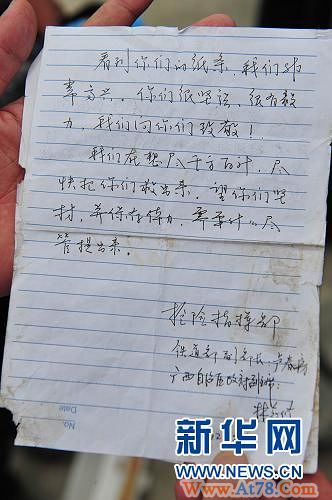 看到你们的纸条，我们非
常高兴。你们很坚强，很有毅
力，我们向你们致敬！
我们在想尽千方百计，尽
快把你们救出来，望你们坚
持，并保存体力，需要什么尽
管提出来。
抢险指挥部
铁道部副部长：卢春房
广西自治区政府副主席：
No.
Date
新华网
WWW.
www.At78.Com